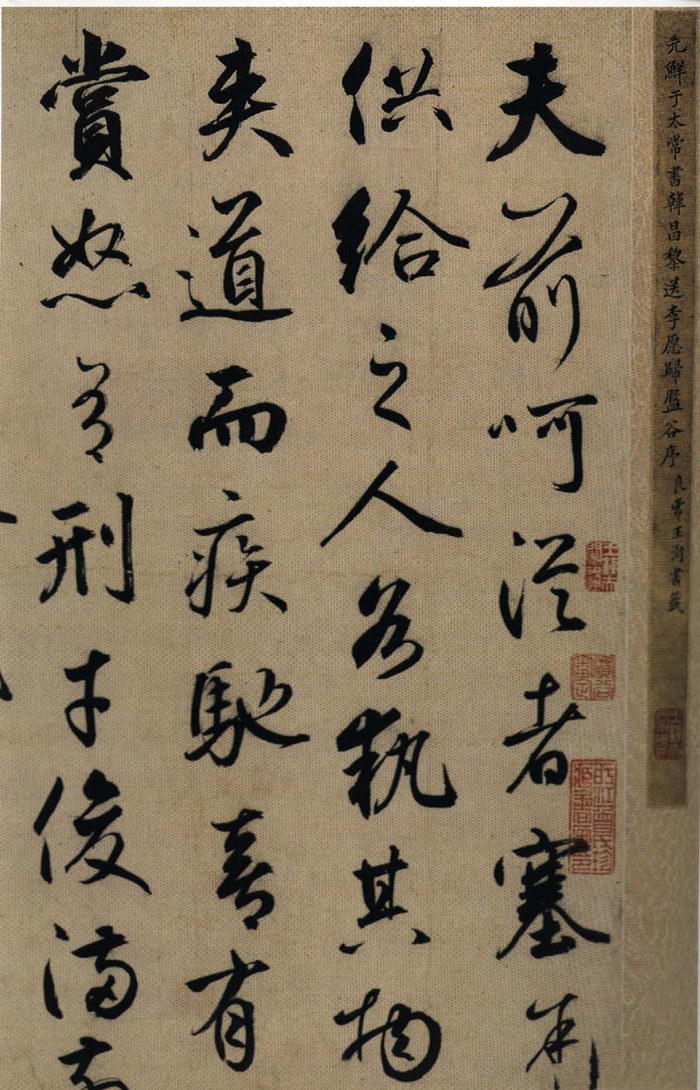 元鮮于太常書韓昌黎送李愿歸盤谷序
良常王澍書籤
夫前呵從者塞
供給之人各執其物
夾道而疾馳喜有
賞怒有刑才俊滿